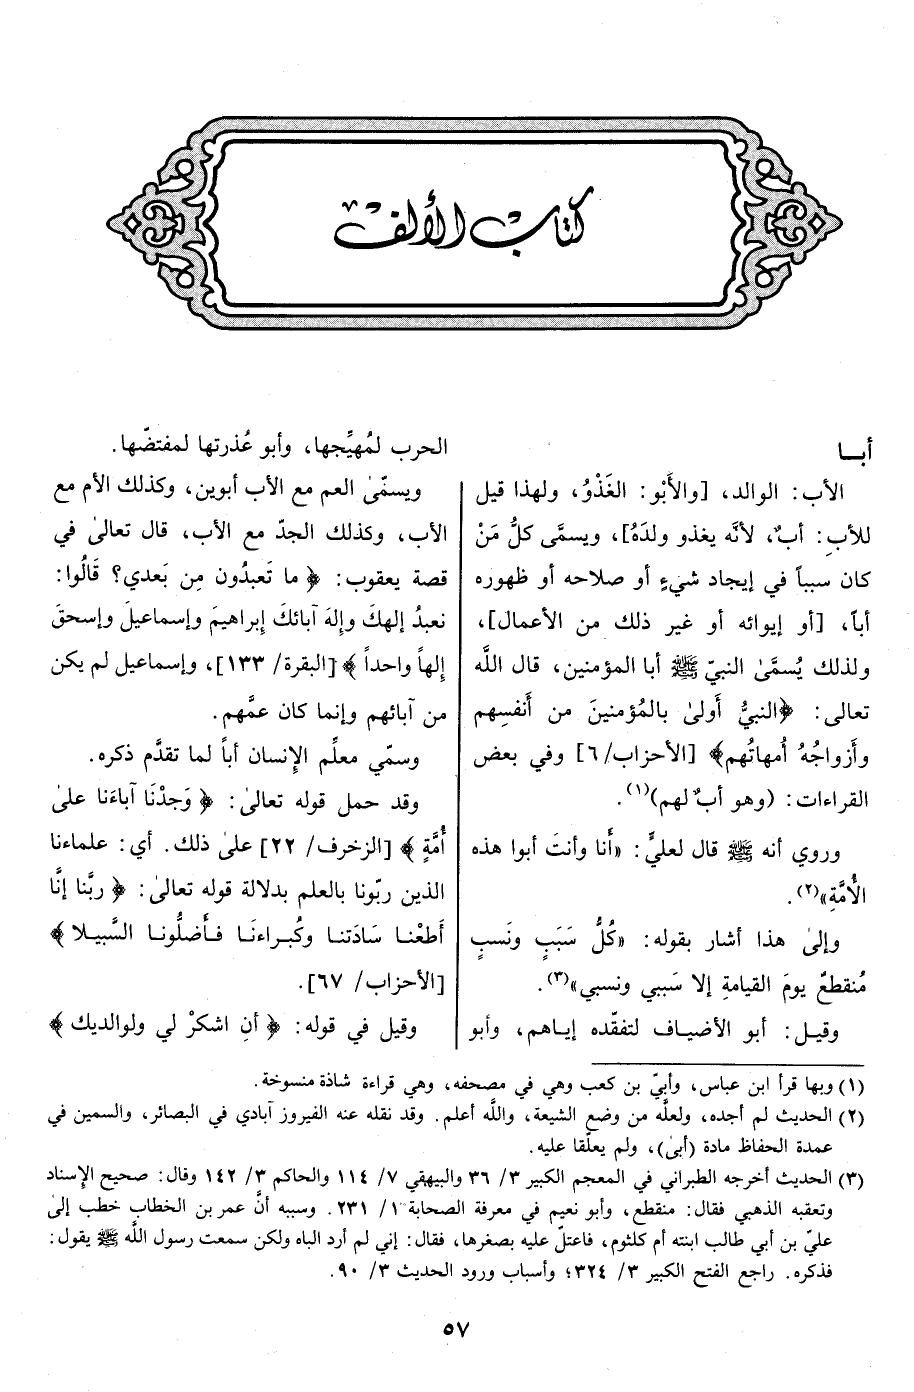 كتاب الألف
أبــا
الأب: الوالد، [والأَبْو: الغَذْوُ، ولهذا قيل
للأبِ: أبٌ، لأنَّه يغذو ولدَهُ]، ويسمَّى كلُّ مَنْ
كان سبباً في إيجاد شيءٍ أو صلاحه أو ظهوره
أباً، [أو إيوائه أو غير ذلك من الأعمال]،
ولذلك يُسمَّىٰ النبيّ ﷺ أبا المؤمنين، قال اللَّه
تعالى: ﴿النبيُّ أَولىٰ بالمُؤمنينَ من أَنفسِهم
وأَزواجُهُ أُمهاتُهم﴾ [الأحزاب/٦] وفي بعض
القراءات: (وهو أبٌ لهم)(١).
وروي أنه ﷺ قال لعليٍّ: «أَنا وأنتَ أبوا هذه
الأُمَّةِ»(٢).
وإلىٰ هذا أشار بقوله: «كُلُّ سَبَبٍ ونَسبٍ
مُنقطعٌ يومَ القيامةِ إلا سَببي ونسبي»(٣).
وقيـل: أبو الأضيـاف لتفقّده إيـاهم، وأبو
الحرب لمُهيِّجها، وأبو عُذرتها لمفتضّها.
ويسمّىٰ العم مع الأب أبوين، وكذلك الأم مع
الأب، وكذلك الجدّ مع الأب، قال تعالىٰ في
قصة يعقوب: ﴿ ما تَعبدُون مِن بَعدي؟ قَالُوا:
نعبدُ إلهكَ وإلهَ آبائكَ إبراهيمَ وإسماعيلَ وإسحقَ
إِلهاً واحداً ﴾ [البقرة/ ١٣٣]، وإسماعيل لم يكن
من آبائهم وإنما كان عمَّهم.
وسمّي معلِّم الإِنسان أباً لما تقدَّم ذكره.
وقد حمل قوله تعالىٰ: ﴿ وَجدْنَا آباءَنا علىٰ
أُمَّةٍ ﴾ [الزخرف/ ٢٢] علىٰ ذلك. أي: علماءنا
الذين ربّونا بالعلم بدلالة قوله تعالىٰ: ﴿ ربَّنا إنَّا
أَطعْنـا سَادَتنـا وكُبـراءنَـا فـأَضلُّونـا السَّبيلا ﴾
[الأحزاب/ ٦٧].
وقيل في قوله: ﴿ أنِ اشكرْ لي ولوالديك ﴾
(١) وبها قرأ ابن عباس، وأبيّ بن كعب وهي في مصحفه، وهي قراءة شاذة منسوخة.
(٢) الحديث لم أجده، ولعلَّه من وضع الشيعة، واللَّه أعلم. وقد نقله عنه الفيروز آبادي في البصائر، والسمين في
عمدة الحفاظ مادة (أبىٰ)، ولم يعلّقا عليه.
(٣) الحديث أخرجه الطبراني في المعجم الكبير ٣/ ٣٦ والبيهقي ٧/ ١١٤ والحاكم ٣/ ١٤٢ وقال: صحيح الإِسناد
وتعقبه الذهبي فقال: منقطع، وأبو نعيم في معرفة الصحابة ١/ ٢٣١. وسببه أنَّ عمر بن الخطاب خطب إلىٰ
عليّ بن أبي طالب ابنته أم كلثوم، فاعتلّ عليه بصغرها، فقال: إني لم أرد الباه ولكن سمعت رسول اللَّه ﷺ يقول:
فذكره. راجع الفتح الكبير ٣/ ٣٢٤؛ وأسباب ورود الحديث ٣/ ٩٠.
٥٧